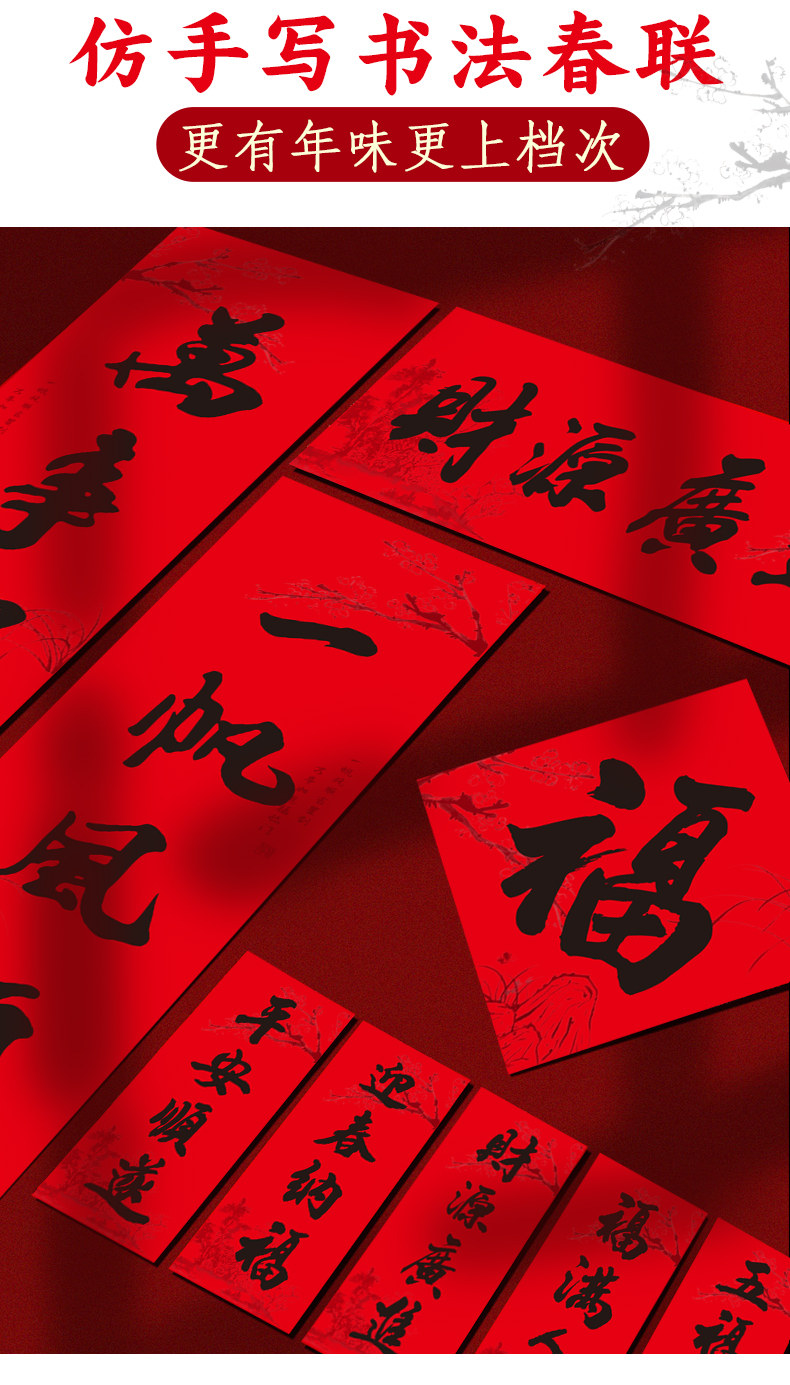 仿手写书法春联
更有年味更上档次
萬事
財源廣
一帆風
福
平安順遂
迎春纳福
財源廣進
福满人
五福